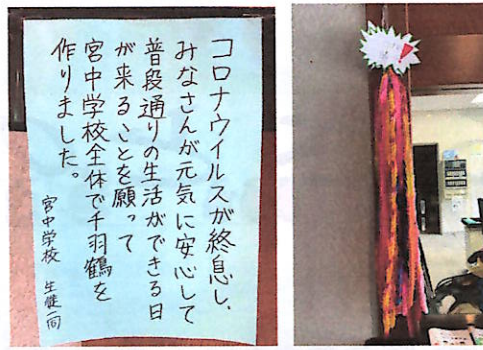 コロナウイルスが終息し、
みなさんが元気に安心して
普段通りの生活ができる日
が来ることを願って
宮中学校全体で千羽鶴を
作りました。
宮中学校 生徒一同